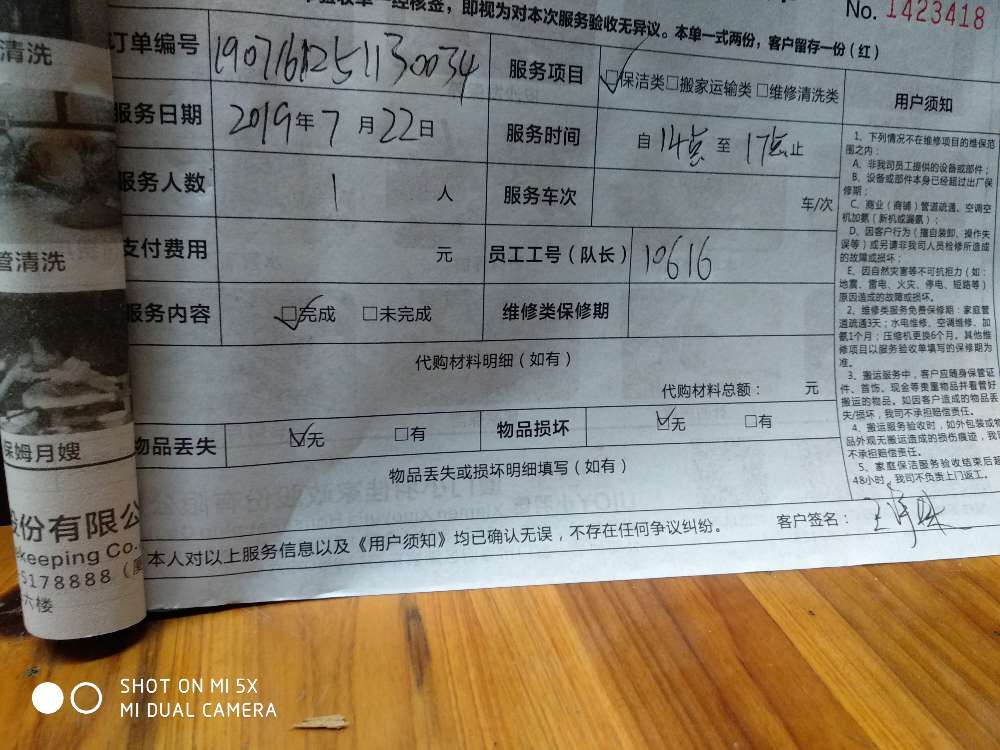 验收单一经核签，即视为对本次服务验收无异议。本单一式两份，客户留存一份（红）
No. 1423418
订单编号 1907161251130034 服务项目 ☑保洁类□搬家运输类 □维修清洗类
服务日期 2019年7月22日 服务时间 自14点至17点止
服务人数 1人 服务车次 车/次
支付费用 元 员工工号（队长） 10616
服务内容 ☑完成 □未完成 维修类保修期
代购材料明细（如有）
代购材料总额： 元
物品丢失 ☑无 □有 物品损坏 ☑无 □有
物品丢失或损坏明细填写（如有）
用户须知
1、下列情况不在维修项目的维保范
围之内：
A、非我司员工提供的设备或部件；
B、设备或部件本身已经超过出厂保
修期；
C、商业（商铺）管道疏通、空调空
机加氨（新机或漏氨）；
D、因客户行为（擅自装卸、操作失
误等）或另请非我司人员检修所造成
的故障或损坏；
E、因自然灾害等不可抗拒力（如：
地震、雷电、火灾、停电、短路等）
原因造成的故障或损坏。
2、维修类服务免费保修期：家庭管
道疏通3天；水电维修、空调维修、加
氨1个月；压缩机更换6个月。其他维
修项目以服务验收单填写的保修期为
准。
3、搬运服务中，客户应随身保管证
件、首饰、现金等贵重物品并看管好
搬运的物品。如因客户造成的物品丢
失/损坏，我司不承担赔偿责任。
4、搬运服务验收时，如外包装或物
品外观无搬运造成的损伤痕迹，我司
不承担赔偿责任。
5、家庭保洁服务验收结束后超
48小时，我司不负责上门返工。
本人对以上服务信息以及《用户须知》均已确认无误，不存在任何争议纠纷。 客户签名：
清洗
管清洗
保姆月嫂
股份有限公
ekeeping Co.
5178888
六楼
SHOT ON MI 5X
MI DUAL CAMERA